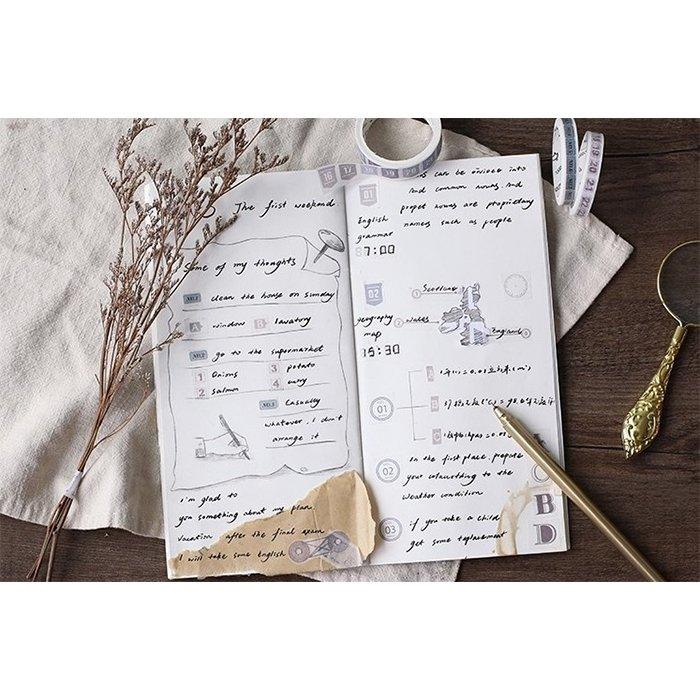 The first weekend.
Some of my thoughts
NO.1 clean the house on sunday
A window B lavatory
NO.2 go to the supermarket
1 Onions 3 potato
2 salmon 4 curry
NO.3 Casually
whatever, I don't
arrange it
I'm glad to
you something about my plan.
vacation after the final exam
I will take some English
16 17 18 19 20
can be divided into
and common nouns. And
proper nouns are proprietary
names such as people
01
English
grammar
87:00
02
geography
map
15:30
Scotland
2 wales
England
01
A
B
C
02
In the first place, prepare
your according to the
weather condition
03
if you take a child
get some
C
B
D
18 19 20 21 22